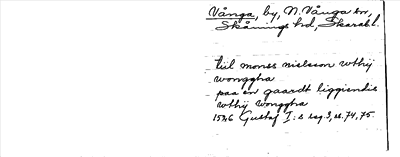 Vånga, by, N. Vånga sn,
Skånings hd, Skarabl.
till monss nielsson wthij
wonggha
paa en gaardt liggiendis
wthij wonggha
1536 Gustaf I:s reg. 3, ss. 74, 75.